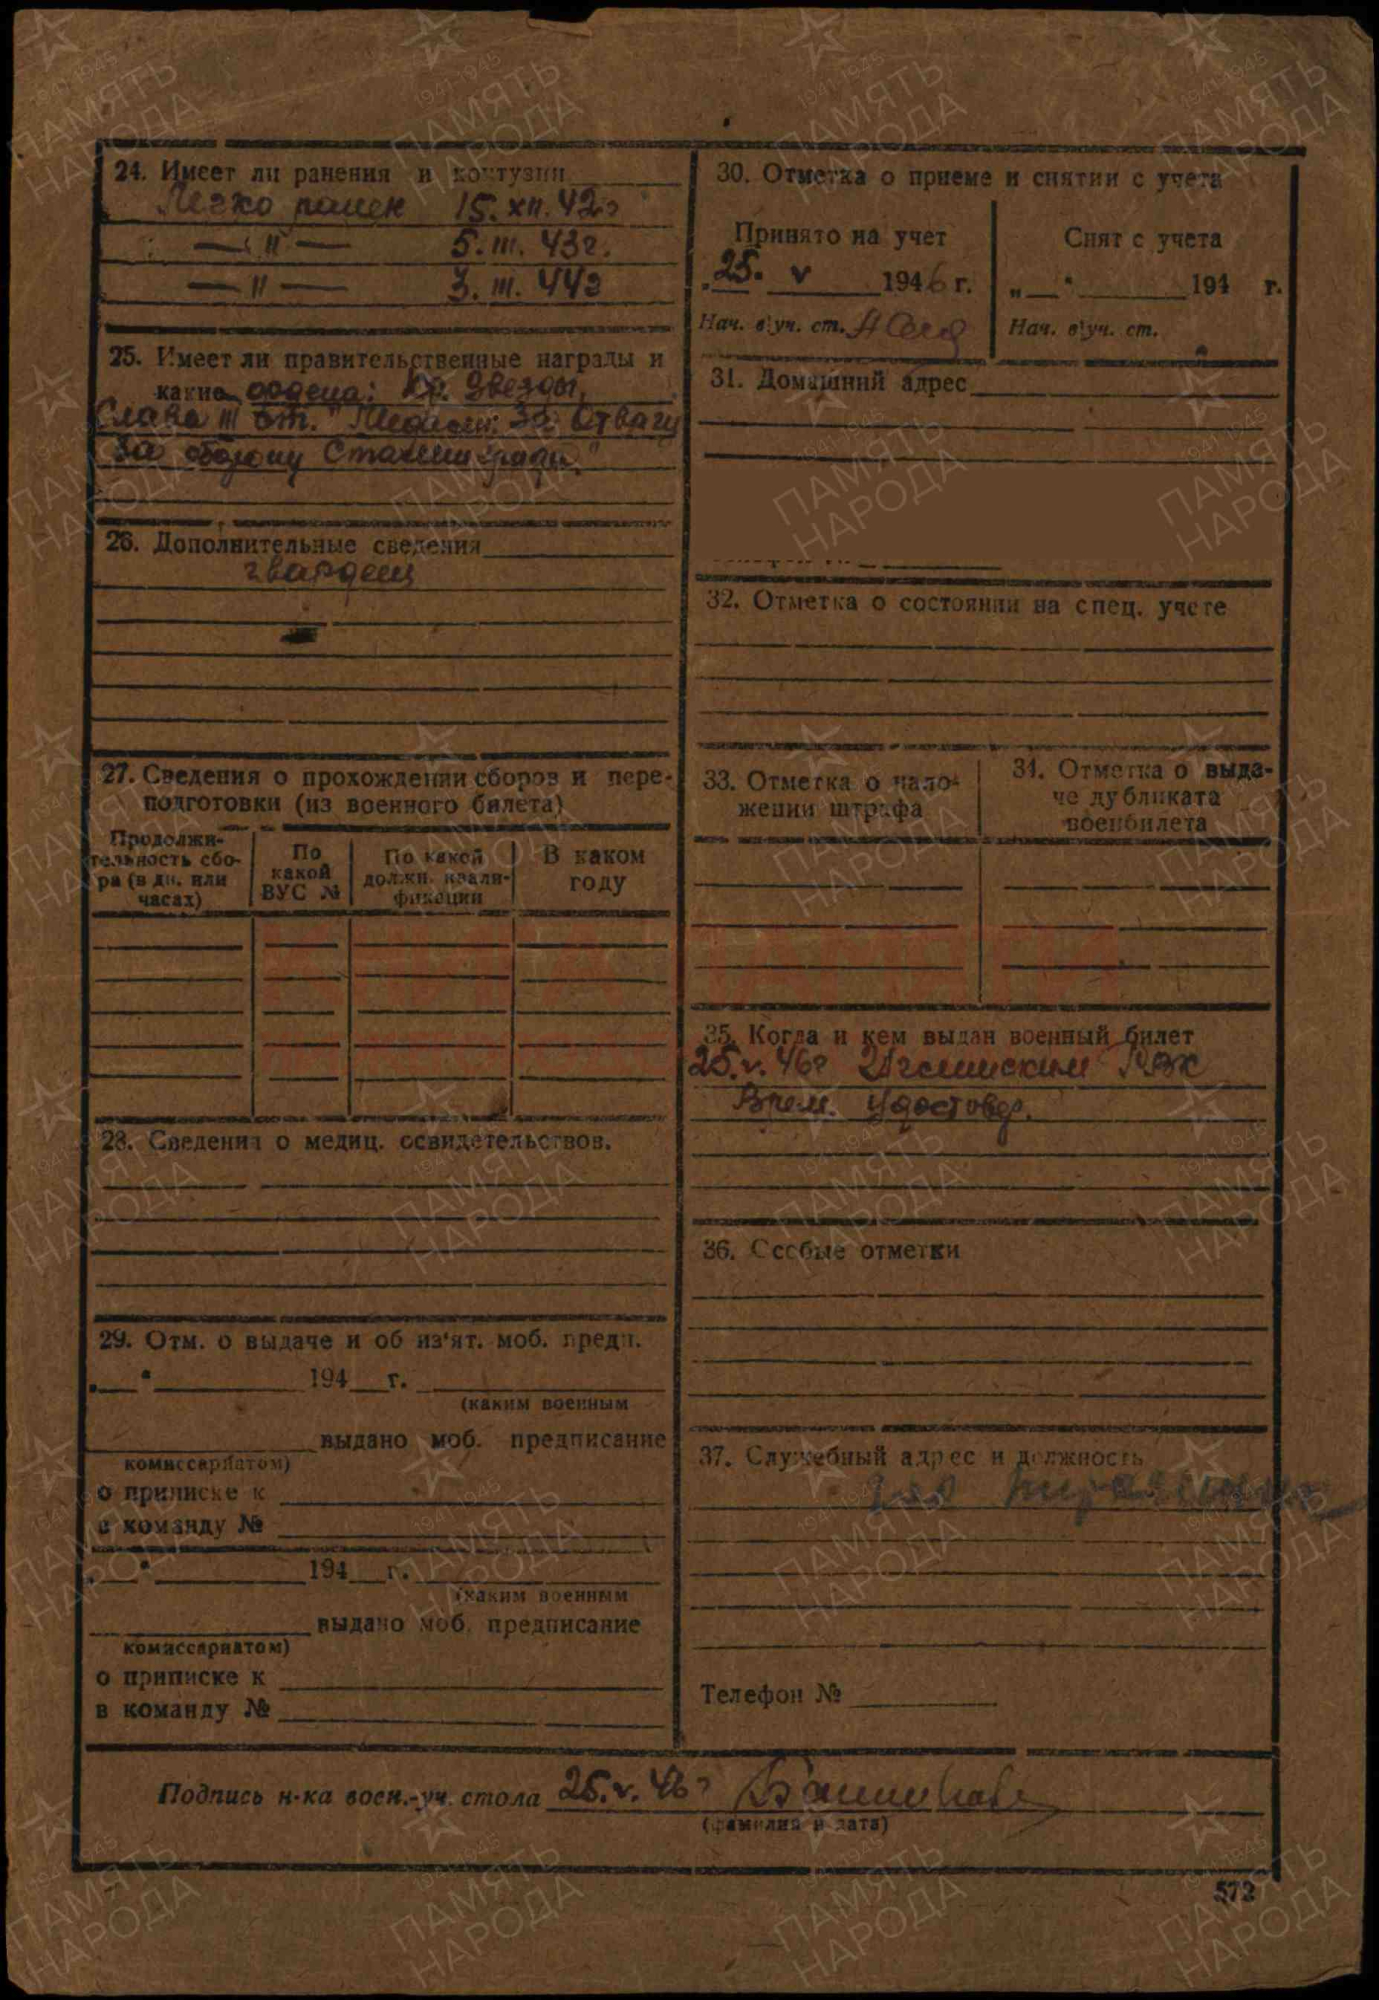 24. Имеет ли ранения и контузии
Легко ранен 15. XII. 42г
— " — 5. III. 43г.
— " — 3. III. 44г
25. Имеет ли правительственные награды и
какие ордена: Кр. Звезды,
Слава III ст." Медали: За Отвагу
За оборону Сталинграда."
26. Дополнительные сведения
гвардеец
27. Сведения о прохождении сборов и пере-
подготовки (из военного билета)
Продолжи-
тельность сбо-
ра (в дн. или
часах)
По
какой
ВУС №
По какой
должн. квали-
фикации
В каком
году
28. Сведения о медиц. освидетельствов.
29. Отм. о выдаче и об из'ят. моб. предп.
„ “ 194 г.
(каким военным
выдано моб. предписание
комиссариатом)
о приписке к
в команду №
„ “ 194 г.
(каким военным
выдано моб. предписание
комиссариатом)
о приписке к
в команду №
30. Отметка о приеме и снятии с учета
Принято на учет
25. V 1946 г.
Нач. в|уч. ст.
Снят с учета
„ “ 194 г.
Нач. в|уч. ст.
31. Домашний адрес
32. Отметка о состоянии на спец. учете
33. Отметка о нало-
жении штрафа
34. Отметка о выда-
че дубликата
военбилета
35. Когда и кем выдан военный билет
25. V. 46г РВК
Врем. удостовер.
36. Особые отметки
37. Служебный адрес и должность
Телефон №
Подпись н-ка воен.-уч. стола 25. V. 46г
(фамилия и дата)
572
КНИГА ПАМЯТИ
1941-1945
ПАМЯТЬ
НАРОДА